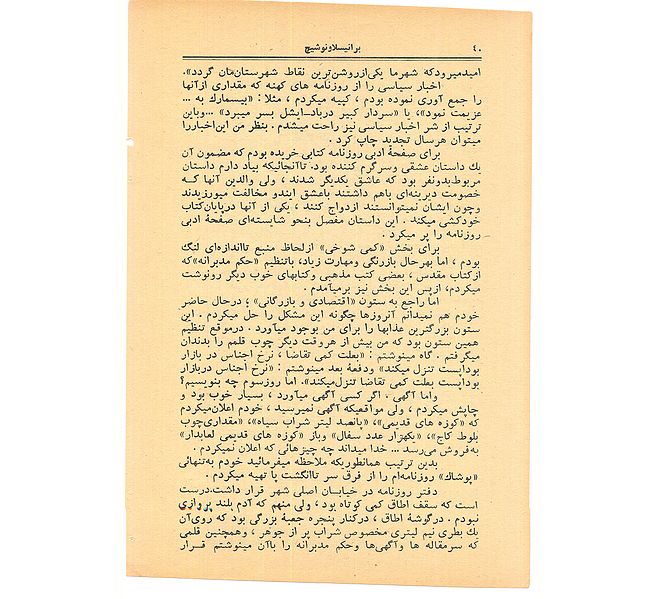 ۴۰
برانیسلاونوشیچ
امیدمیرودکه شهرما یکی‌ازروشن‌ترین نقاط شهرستان‌مان گردد».
اخبار سیاسی را از روزنامه های کهنه که مقداری ازآنها
را جمع آوری نموده بودم ، کپیه میکردم ، مثلا : «بیسمارک به ...
عزیمت نمود»، یا «سردار کبیر درباد-ایشل بسر میبرد» ...وباین
ترتیب از شر اخبار سیاسی نیز راحت میشدم . بنظر من این‌اخباررا
میتوان هرسال تجدید چاپ کرد .
برای صفحهٔ ادبی روزنامه کتابی خریده بودم که مضمون آن
یك داستان عشقی وسرگرم کننده بود. تاآنجائیکه بیاد دارم داستان
مربوط‌بدونفر بود که عاشق یکدیگر شدند ، ولی والدین آنها کـه
خصومت دیرینه‌ای باهم داشتند باعشق ایندو مخالفت میورزیدند
وچون ایشان نمیتوانستند ازدواج کنند ، یکی از آنها درپایان‌کتاب
خودکشی میکند . این داستان مفصل بنحو شایسته‌ای صفحهٔ ادبی
روزنامه را پر میکرد .
برای بخش «کمی شوخی» ازلحاظ منبع تااندازه‌ای لنگ
بودم ، اما بهرحال بازرنگی ومهارت زیاد، باتنظیم «حکم مدبرانه»که
ازکتاب مقدس ، بعضی کتب مذهبی وکتابهای خوب دیگر رونوشت
میکردم، ازپس این بخش نیز برمیآمدم .
اما راجع به ستون «اقتصادی و بازرگانی» ؛ درحال حاضر
خودم هم نمیدانم آنروزها چگونه این مشکل را حل میکردم . این
ستون بزرگترین عذابها را برای من بوجود میآورد . درموقع تنظیم
همین ستون بود که من بیش از هروقت دیگر چوب قلمم را بدندان
میگرفتم . گاه مینوشتم : «بعلت کمی تقاضا ، نرخ اجناس در بازار
بوداپست تنزل میکند» ودفعهٔ بعد مینوشتم : «نرخ اجناس دربازار
بوداپست بعلت کمی تقاضا تنزل‌میکند». اما روزسوم چه بنویسیم؟
واما آگهی . اگر کسی آگهی میآورد ، بسیار خوب بود و
چاپش میکردم ، ولی مواقعیکه آگهی نمیرسید ، خودم اعلان‌میکردم
که «کوزه های قدیمی»، «پانصد لیتر شراب سیاه»، «مقداری‌چوب
بلوط کاج»، «یکهزار عدد سفال» وباز «کوزه های قدیمی لعابدار»
به‌فروش می‌رسد ... خدا میداند چه چیزهائی که اعلان نمیکردم .
بدین ترتیب همانطوریکه ملاحظه میفرمائید خودم به‌تنهائی
«پوشاك» روزنامه‌ام را از فرق سر تاانگشت پا تهیه میکردم .
دفتر روزنامه در خیابان اصلی شهر قرار داشت.درست
است که سقف اطاق کمی کوتاه بود ، ولی منهم که آدم بلند پروازی
نبودم . درگوشهٔ اطاق ، درکنار پنجره جعبهٔ بزرگی بود که روی‌آن
یك بطری نیم لیتری مخصوص شراب پر از جوهر ، وهمچنین قلمی
که سرمقاله ها وآگهی‌ها وحکم مدبرانه را باآن مینوشتم قـرار